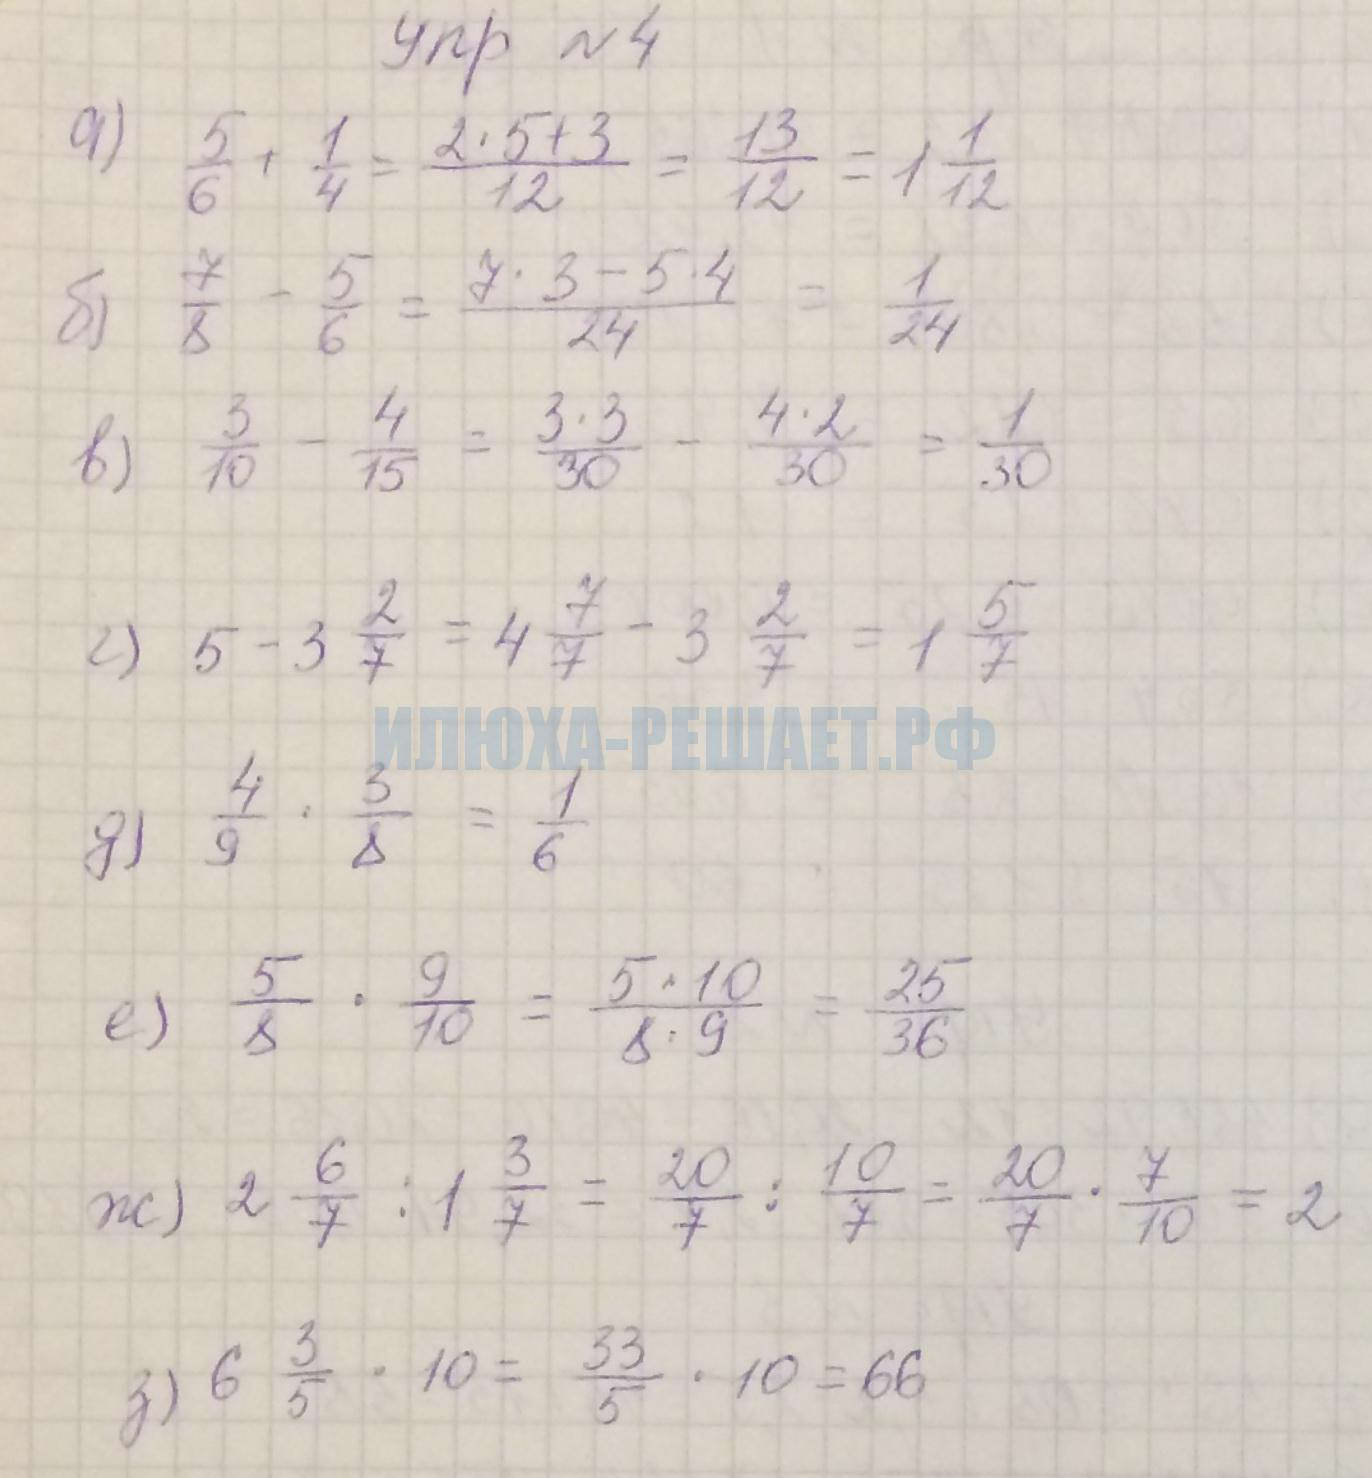 Упр №4
а) 5/6 + 1/4 = (2·5+3)/12 = 13/12 = 1 1/12
б) 7/8 - 5/6 = (7·3-5·4)/24 = 1/24
в) 3/10 - 4/15 = 3·3/30 - 4·2/30 = 1/30
г) 5 - 3 2/7 = 4 7/7 - 3 2/7 = 1 5/7
ИЛЮХА-РЕШАЕТ.РФ
д) 4/9 · 3/8 = 1/6
е) 5/8 · 9/10 = 5·10/8·9 = 25/36
ж) 2 6/7 : 1 3/7 = 20/7 : 10/7 = 20/7 · 7/10 = 2
з) 6 3/5 · 10 = 33/5 · 10 = 66